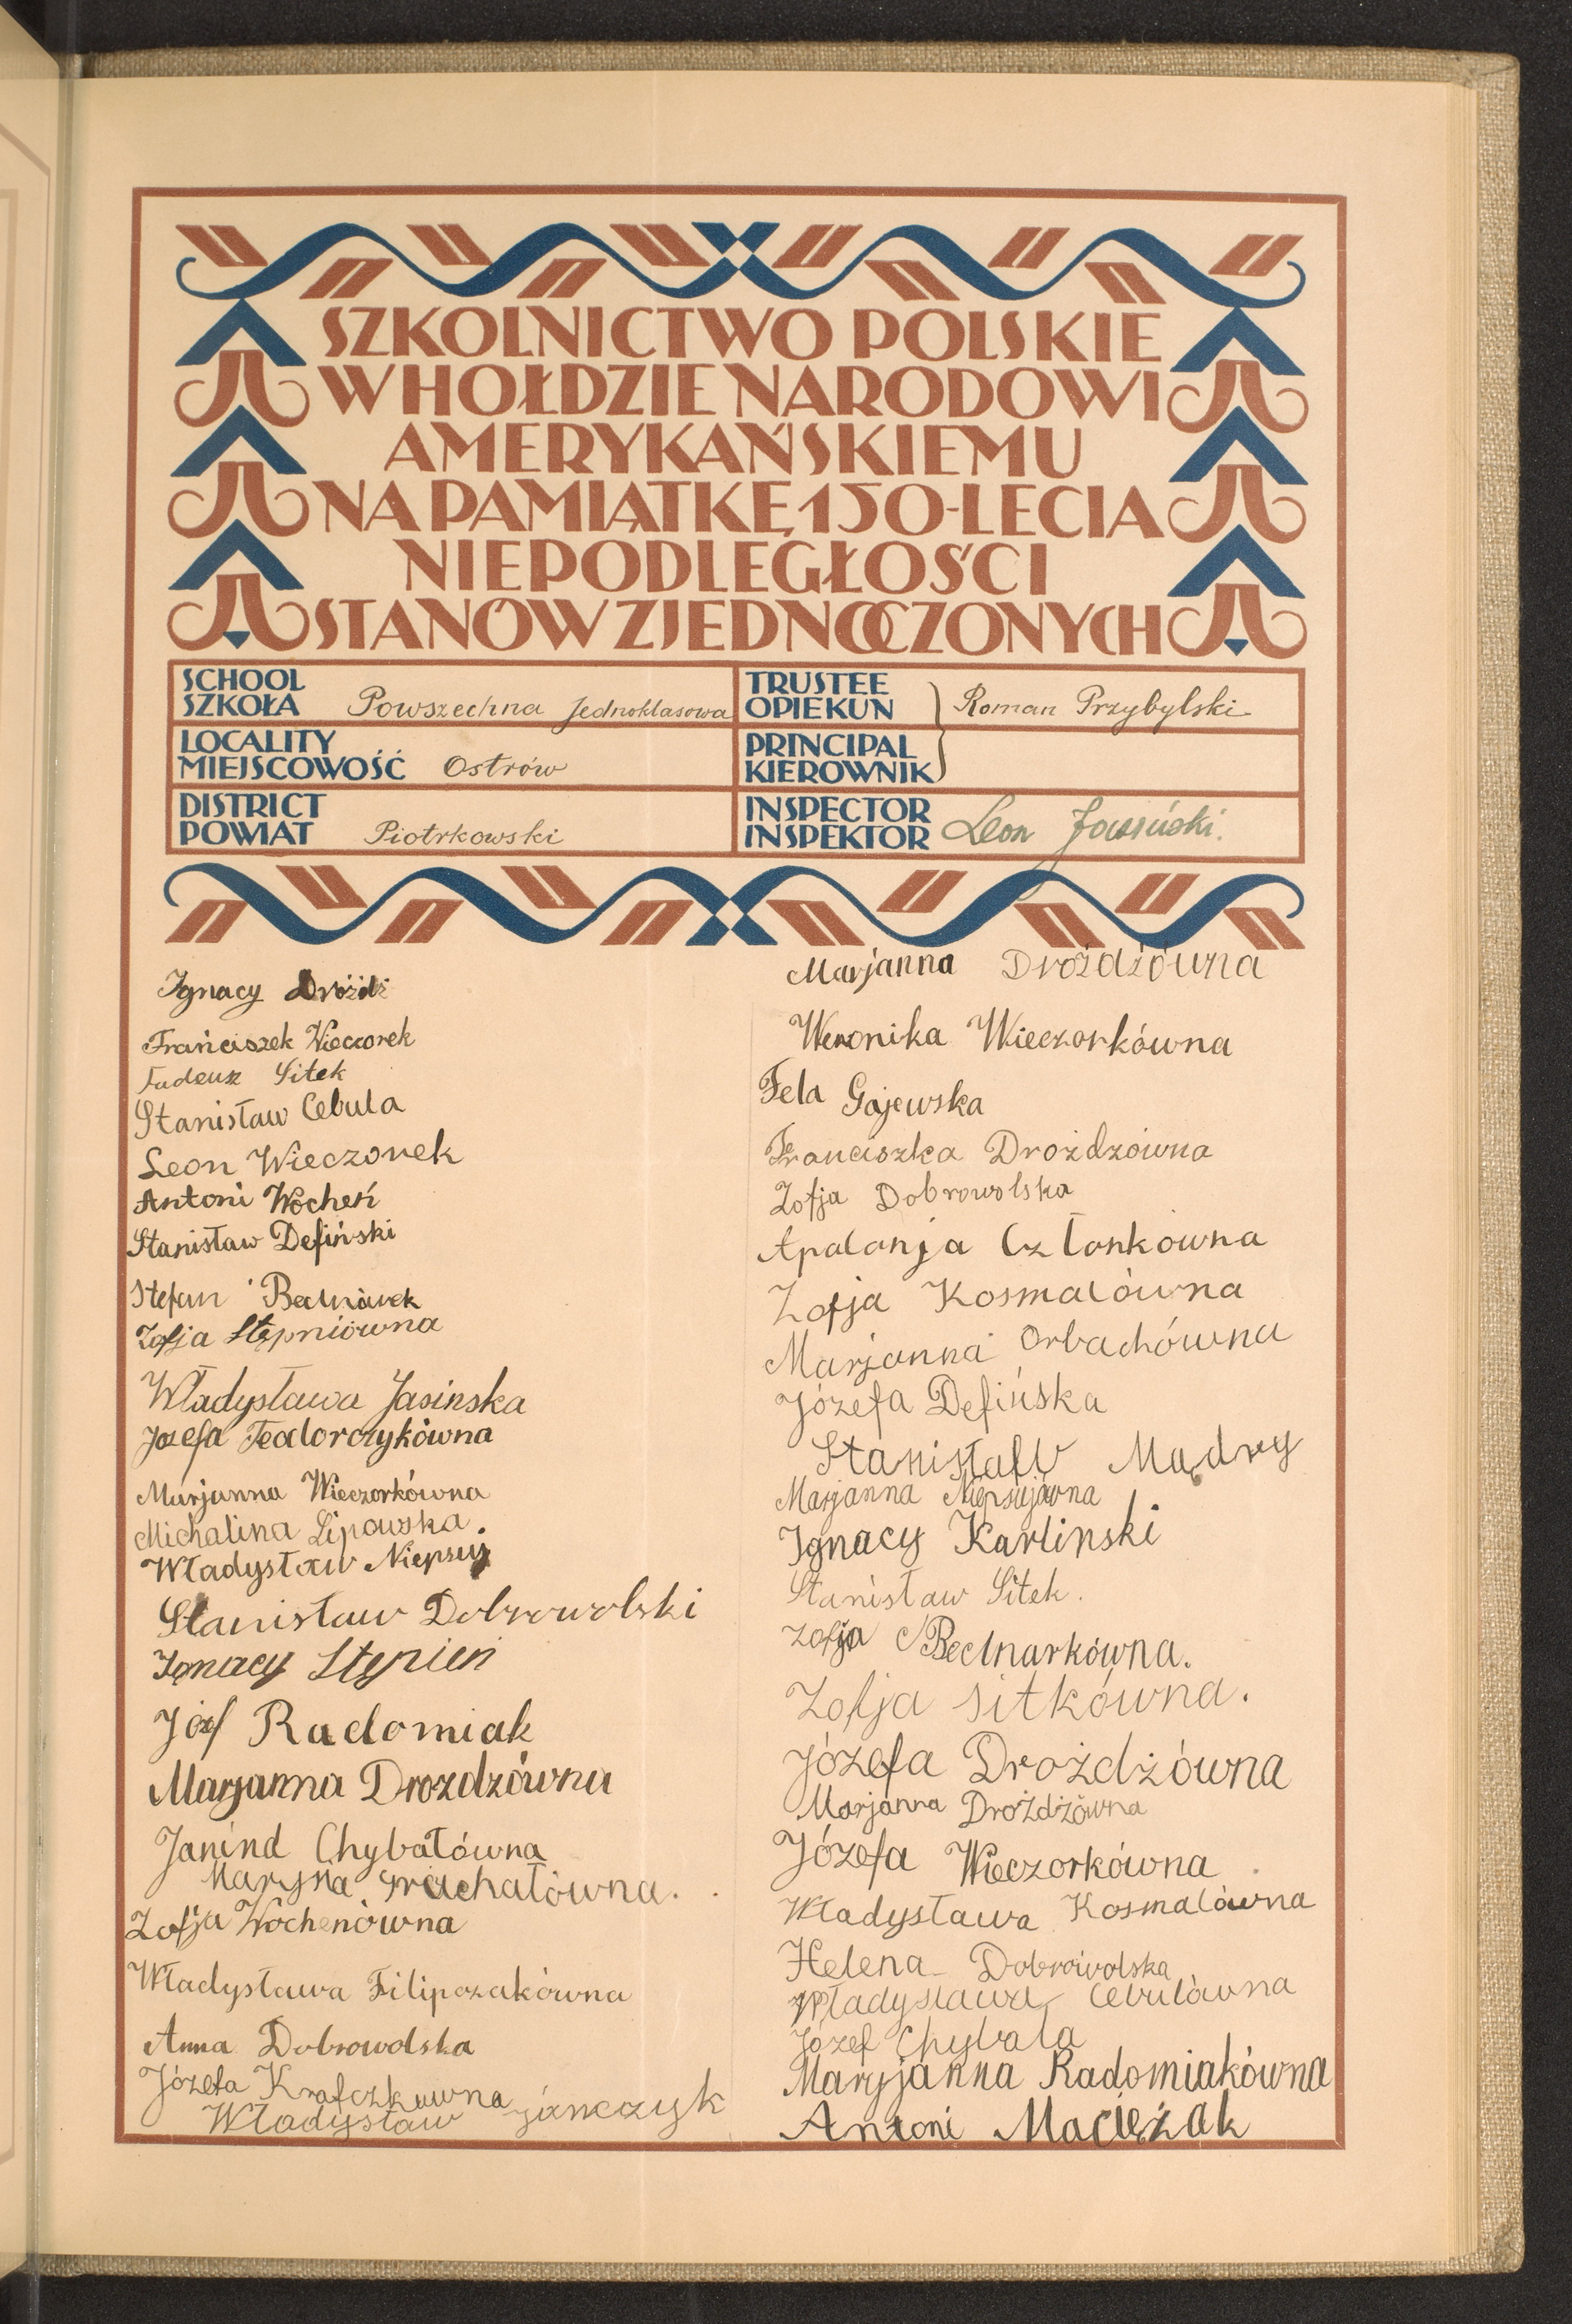 SZKOLNICTWO POLSKIE
W HOŁDZIE NARODOWI
AMERYKAŃSKIEMU
NA PAMIĄTKĘ 150-LECIA
NIEPODLEGŁOŚCI
STANÓW ZJEDNOCZONYCH
SCHOOL
SZKOŁA Powszechna Jednoklasowa
TRUSTEE
OPIEKUN Roman Przybylski
LOCALITY
MIEJSCOWOŚĆ Ostrów
PRINCIPAL
KIEROWNIK
DISTRICT
POWIAT Piotrkowski
INSPECTOR
INSPEKTOR Leon
Ignacy Dróżdż
Franciszek Wieczorek
Tadeusz Sitek
Stanisław Cebula
Leon Wieczorek
Antoni Wocheń
Stanisław Defiński
Stefan Bednarek
Zofja Stępniówna
Władysława Jasinska
Jozefa Teodorczykówna
Marjanna Wieczorkówna
Michalina Lipowska.
Władysław Niepsuj
Stanisław Dobrowolski
Ignacy Stępień
Józf Radomiak
Marjanna Drozdzówna
Janina Chybałówna
Maryna Grachałówna.
Zofja Wochenówna
Władysława Filipczakówna
Anna Dobrowolska
Józefa Krafczkuwna
Władysław Janczyk
Marjanna Drożdżówna
Weronika Wieczorkówna
Fela Gajewska
Franciszka Drożdzówna
Zofja Dobrowolska
Apalonja Członkowna
Zofja Kosmalówna
Marjanna Orbachówna
Józefa Defińska
Stanisław Mądry
Marjanna Niepsujówna
Ignacy Karlinski
Stanisław Sitek.
Zofja Bednarkówna.
Zofja Sitkówna.
Józefa Drożdżówna
Marjanna Drożdżówna
Józefa Wieczorkówna
Władysława Kosmalówna
Helena Dobrowolska
Władysława Cebulówna
Józef Chybała
Maryjanna Radomiakówna
Antoni Macieżak